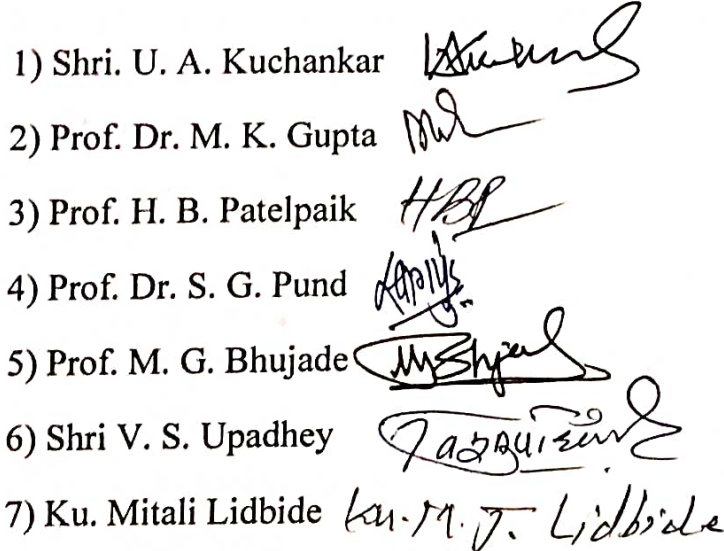 1) Shri. U. A. Kuchankar
2) Prof. Dr. M. K. Gupta
3) Prof. H. B. Patelpaik HBP
4) Prof. Dr. S. G. Pund
5) Prof. M. G. Bhujade
6) Shri V. S. Upadhey
7) Ku. Mitali Lidbide Ku. M. J. Lidbide